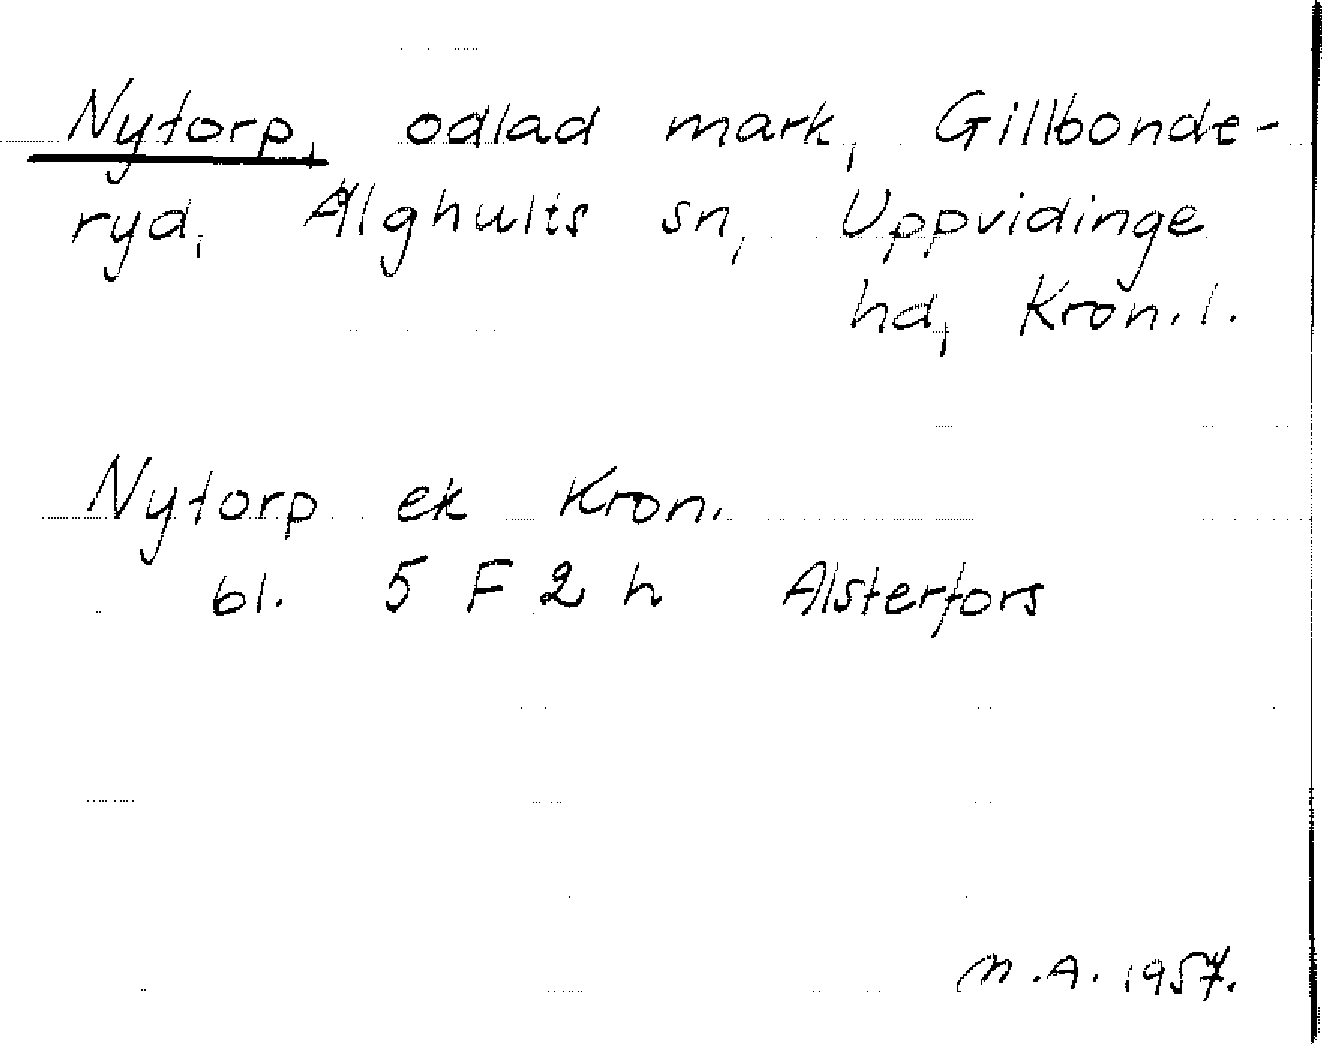 Nytorp, odlad mark, Gillbonde-
ryd, Älghults sn, Uppvidinge
hd, Kron. l.
Nytorp ek Kron.
bl. 5 F 2 h Alsterfors
M.A. 1957.